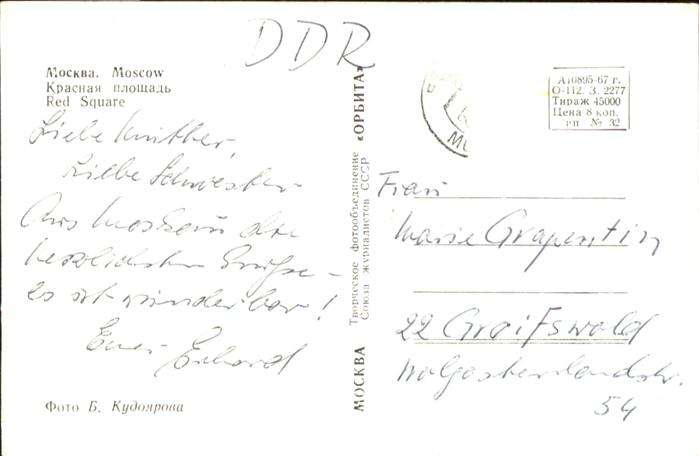 DDR
Москва. Moscow
Красная площадь
Red Square
Liebe Mutter,
Liebe Schwester
Aus Moskau die
herzlichsten Grüße -
Es ist wunderbar!
Euer Erhard
Фото Б. Кудоярова
МОСКВА Творческое фотообъединение Союза журналистов СССР «ОРБИТА»
А10895-67 г.
О-112. З. 2277
Тираж 45000
Цена 8 коп.
рп № 32
Frau
Marie Grapentin
22 Greifswald
Wolgasterlandstr.
54